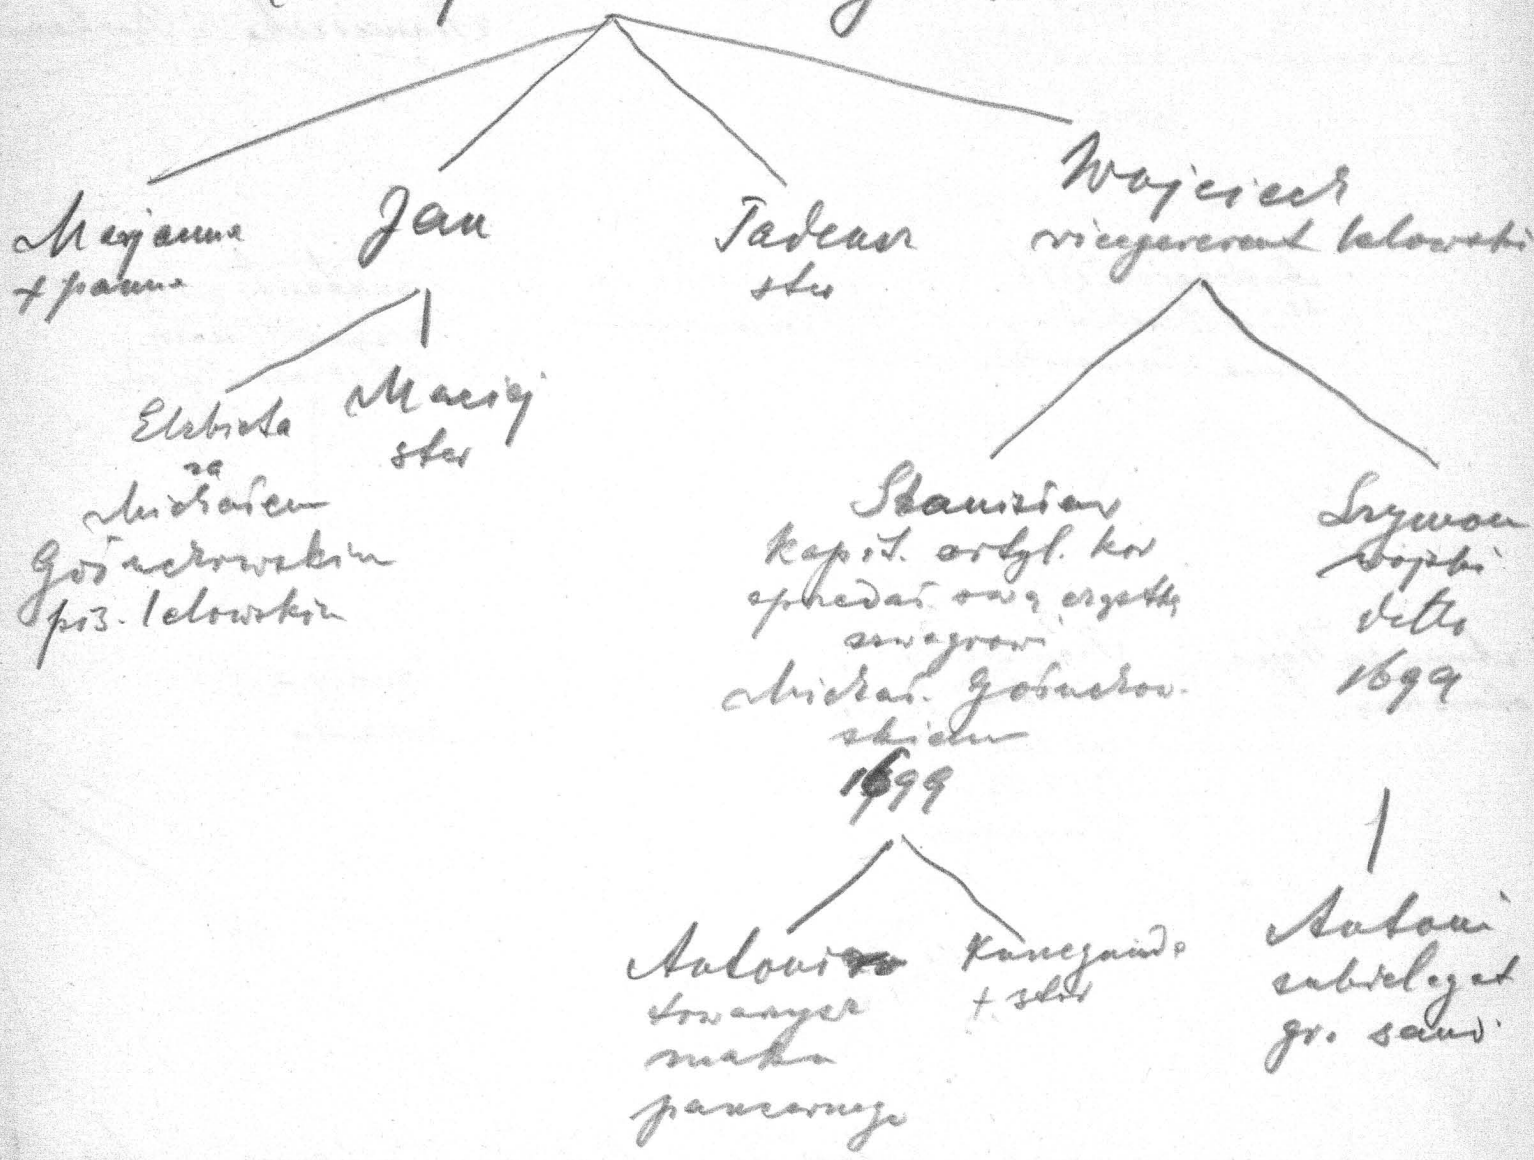 Marjanna
+ panna
Jan
Tadeusz
ster
Wojciech
vicegererent lelowski
Elżbieta
za
Michałem
Gośnchowskim
pis. lelowskim
Maciej
ster
Stanisław
kapit. artyl. kor
sprzedał swą cząstkę
szwagrowi
Michał. Gośnchow.
skiem
1699
Szymon
wojski
detto
1699
Antoni
towarzysz
znaku
pancernego
Kunegunda
+ ster
Antoni
subdelegat
gr. sand